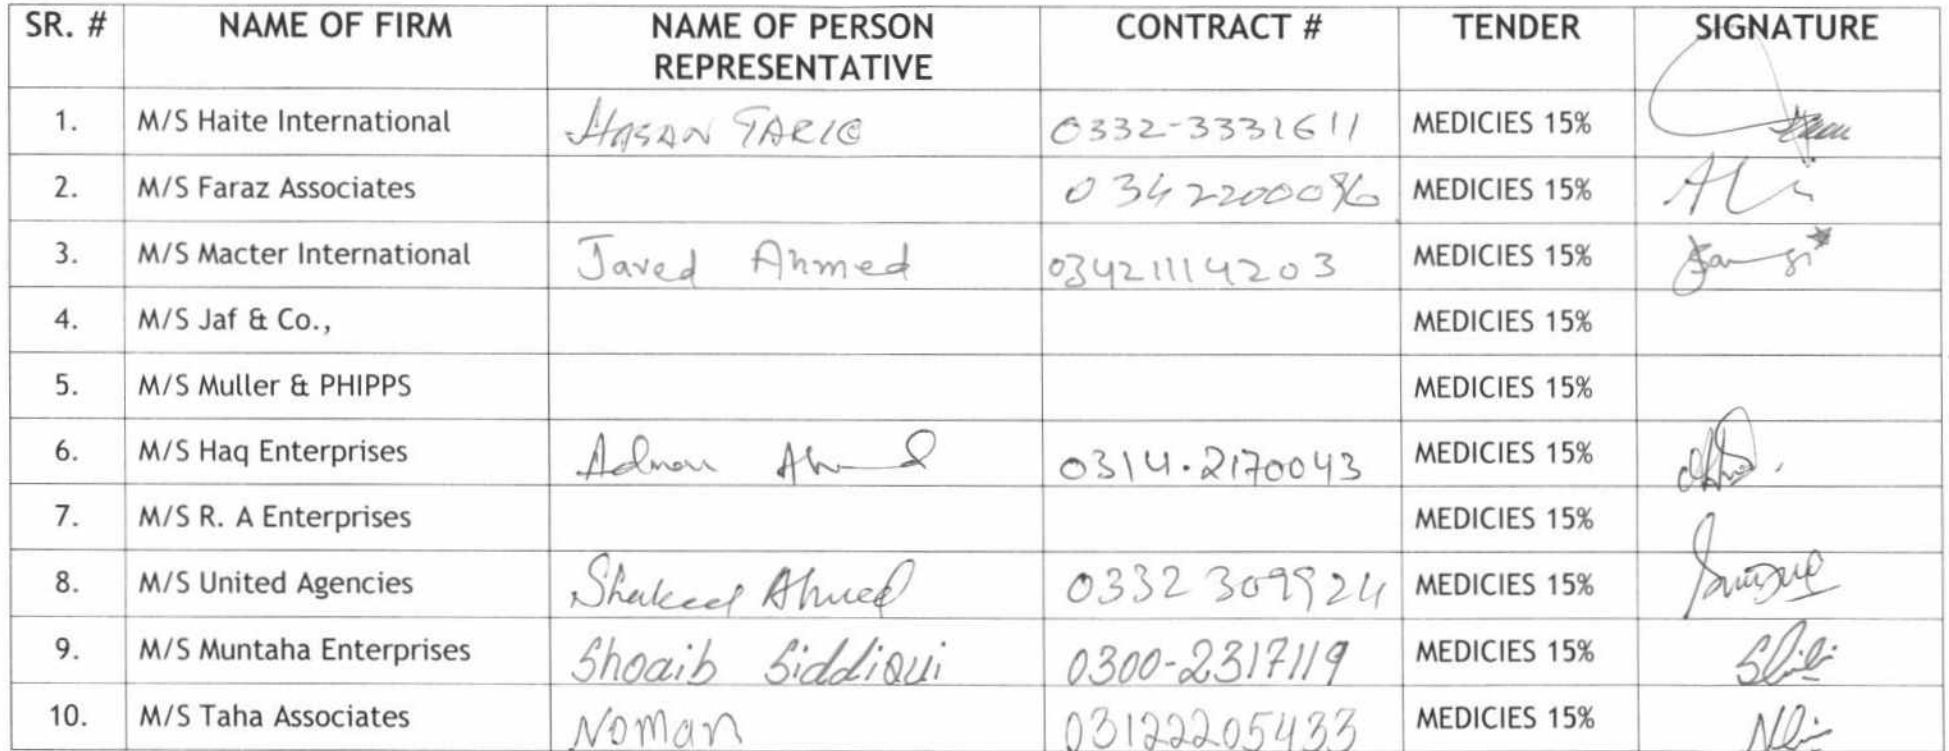 SR. # NAME OF FIRM NAME OF PERSON REPRESENTATIVE CONTRACT # TENDER SIGNATURE
1. M/S Haite International HASAN TARIQ 0332-3331611 MEDICIES 15%
2. M/S Faraz Associates MEDICIES 15%
3. M/S Macter International Javed Ahmed 03421114203 MEDICIES 15%
4. M/S Jaf & Co., MEDICIES 15%
5. M/S Muller & PHIPPS MEDICIES 15%
6. M/S Haq Enterprises Adnan Ahmed 0314.2170043 MEDICIES 15%
7. M/S R. A Enterprises MEDICIES 15%
8. M/S United Agencies Shakeel Ahmed 0332 3099924 MEDICIES 15%
9. M/S Muntaha Enterprises Shoaib Siddiqui 0300-2317119 MEDICIES 15%
10. M/S Taha Associates Noman 031222205433 MEDICIES 15%